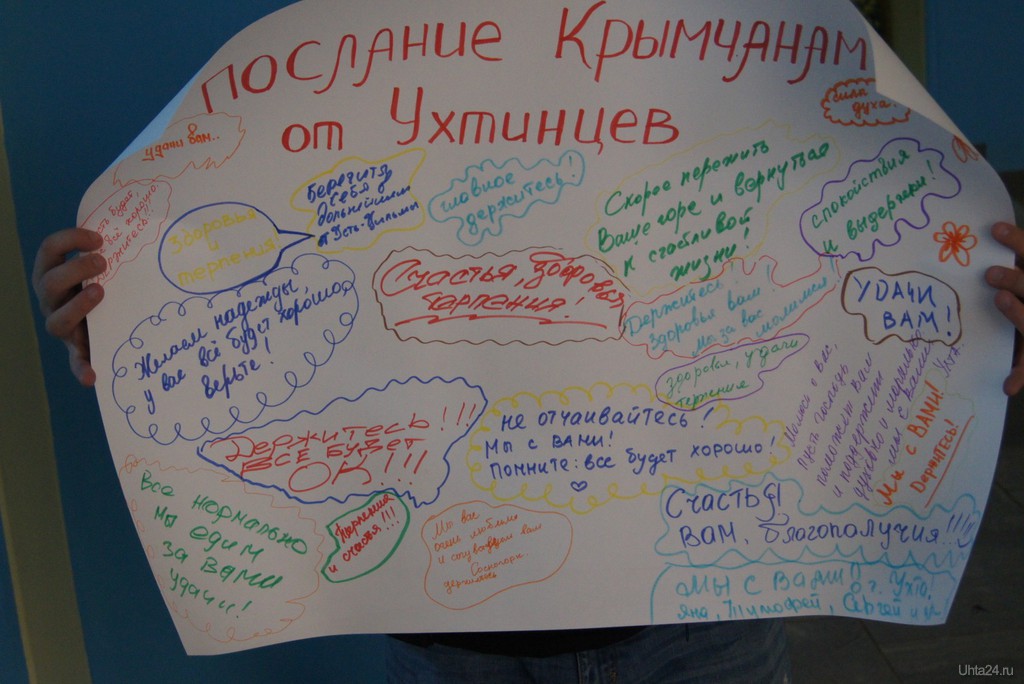 Послание Крымчанам
от Ухтинцев
сила
духа!
удачи вам..
берегите
себя
от Усть-Вилыми
главное
держитесь!
Скорое пережить
Ваше горе и вернуться
к счастливой
жизни!
спокойствия
и выдержки!
всё хорошо
держитесь!
Здоровья
и
терпения
Счастья, здоровья
терпения!
Держитесь!
Здоровья вам!
Мы за вас молимся!
УДАЧИ
ВАМ!
Желаем надежды,
у вас всё будет хорошо,
верьте!
здоровья, удачи
терпения
Держитесь!!!
ВСЁ БУДЕТ
ОК!!!
Не отчаивайтесь!
Мы с вами!
Помните: все будет хорошо!
Молимся о вас,
пусть господь
поможет вам
и поддержит
духовно и морально
мы с вами! Ухта.
Мы с ВАМИ!
Держитесь!
Все нормально
мы едим
за вами
удачи!
Терпения
и счастья!!!
Мы вас
очень любим
и сочувствуем вам
держитесь
Счастья!
Вам, благополучия!!!
Мы с Вами! г. Ухта!
Яна, Тимофей, Сергей и
Uhta24.ru